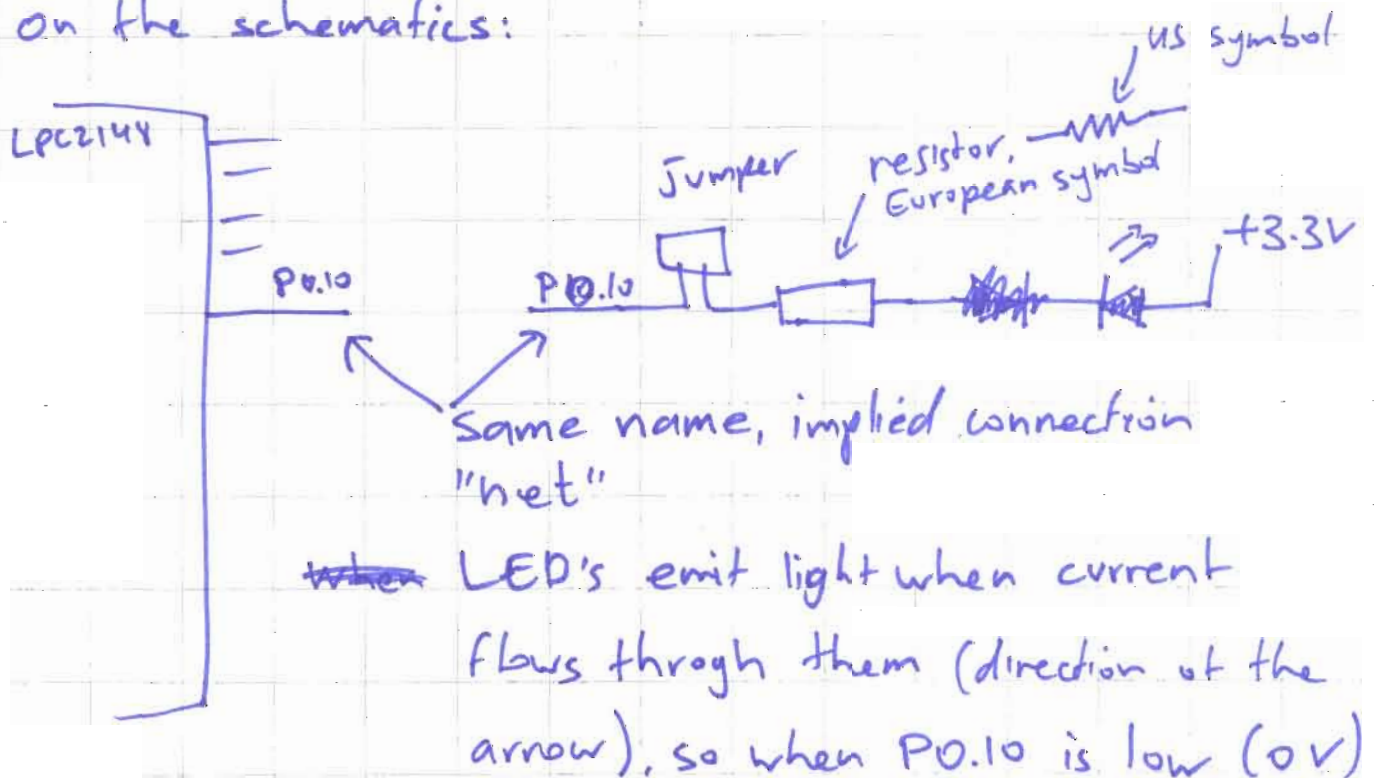 on the schematics:
US symbol
LPC2148
Jumper
resistor,
European symbol
+3.3V
P0.10
P0.10
Same name, implied connection
"net"
LED's emit light when current
flows throgh them (direction of the
arrow), so when P0.10 is low (0V)